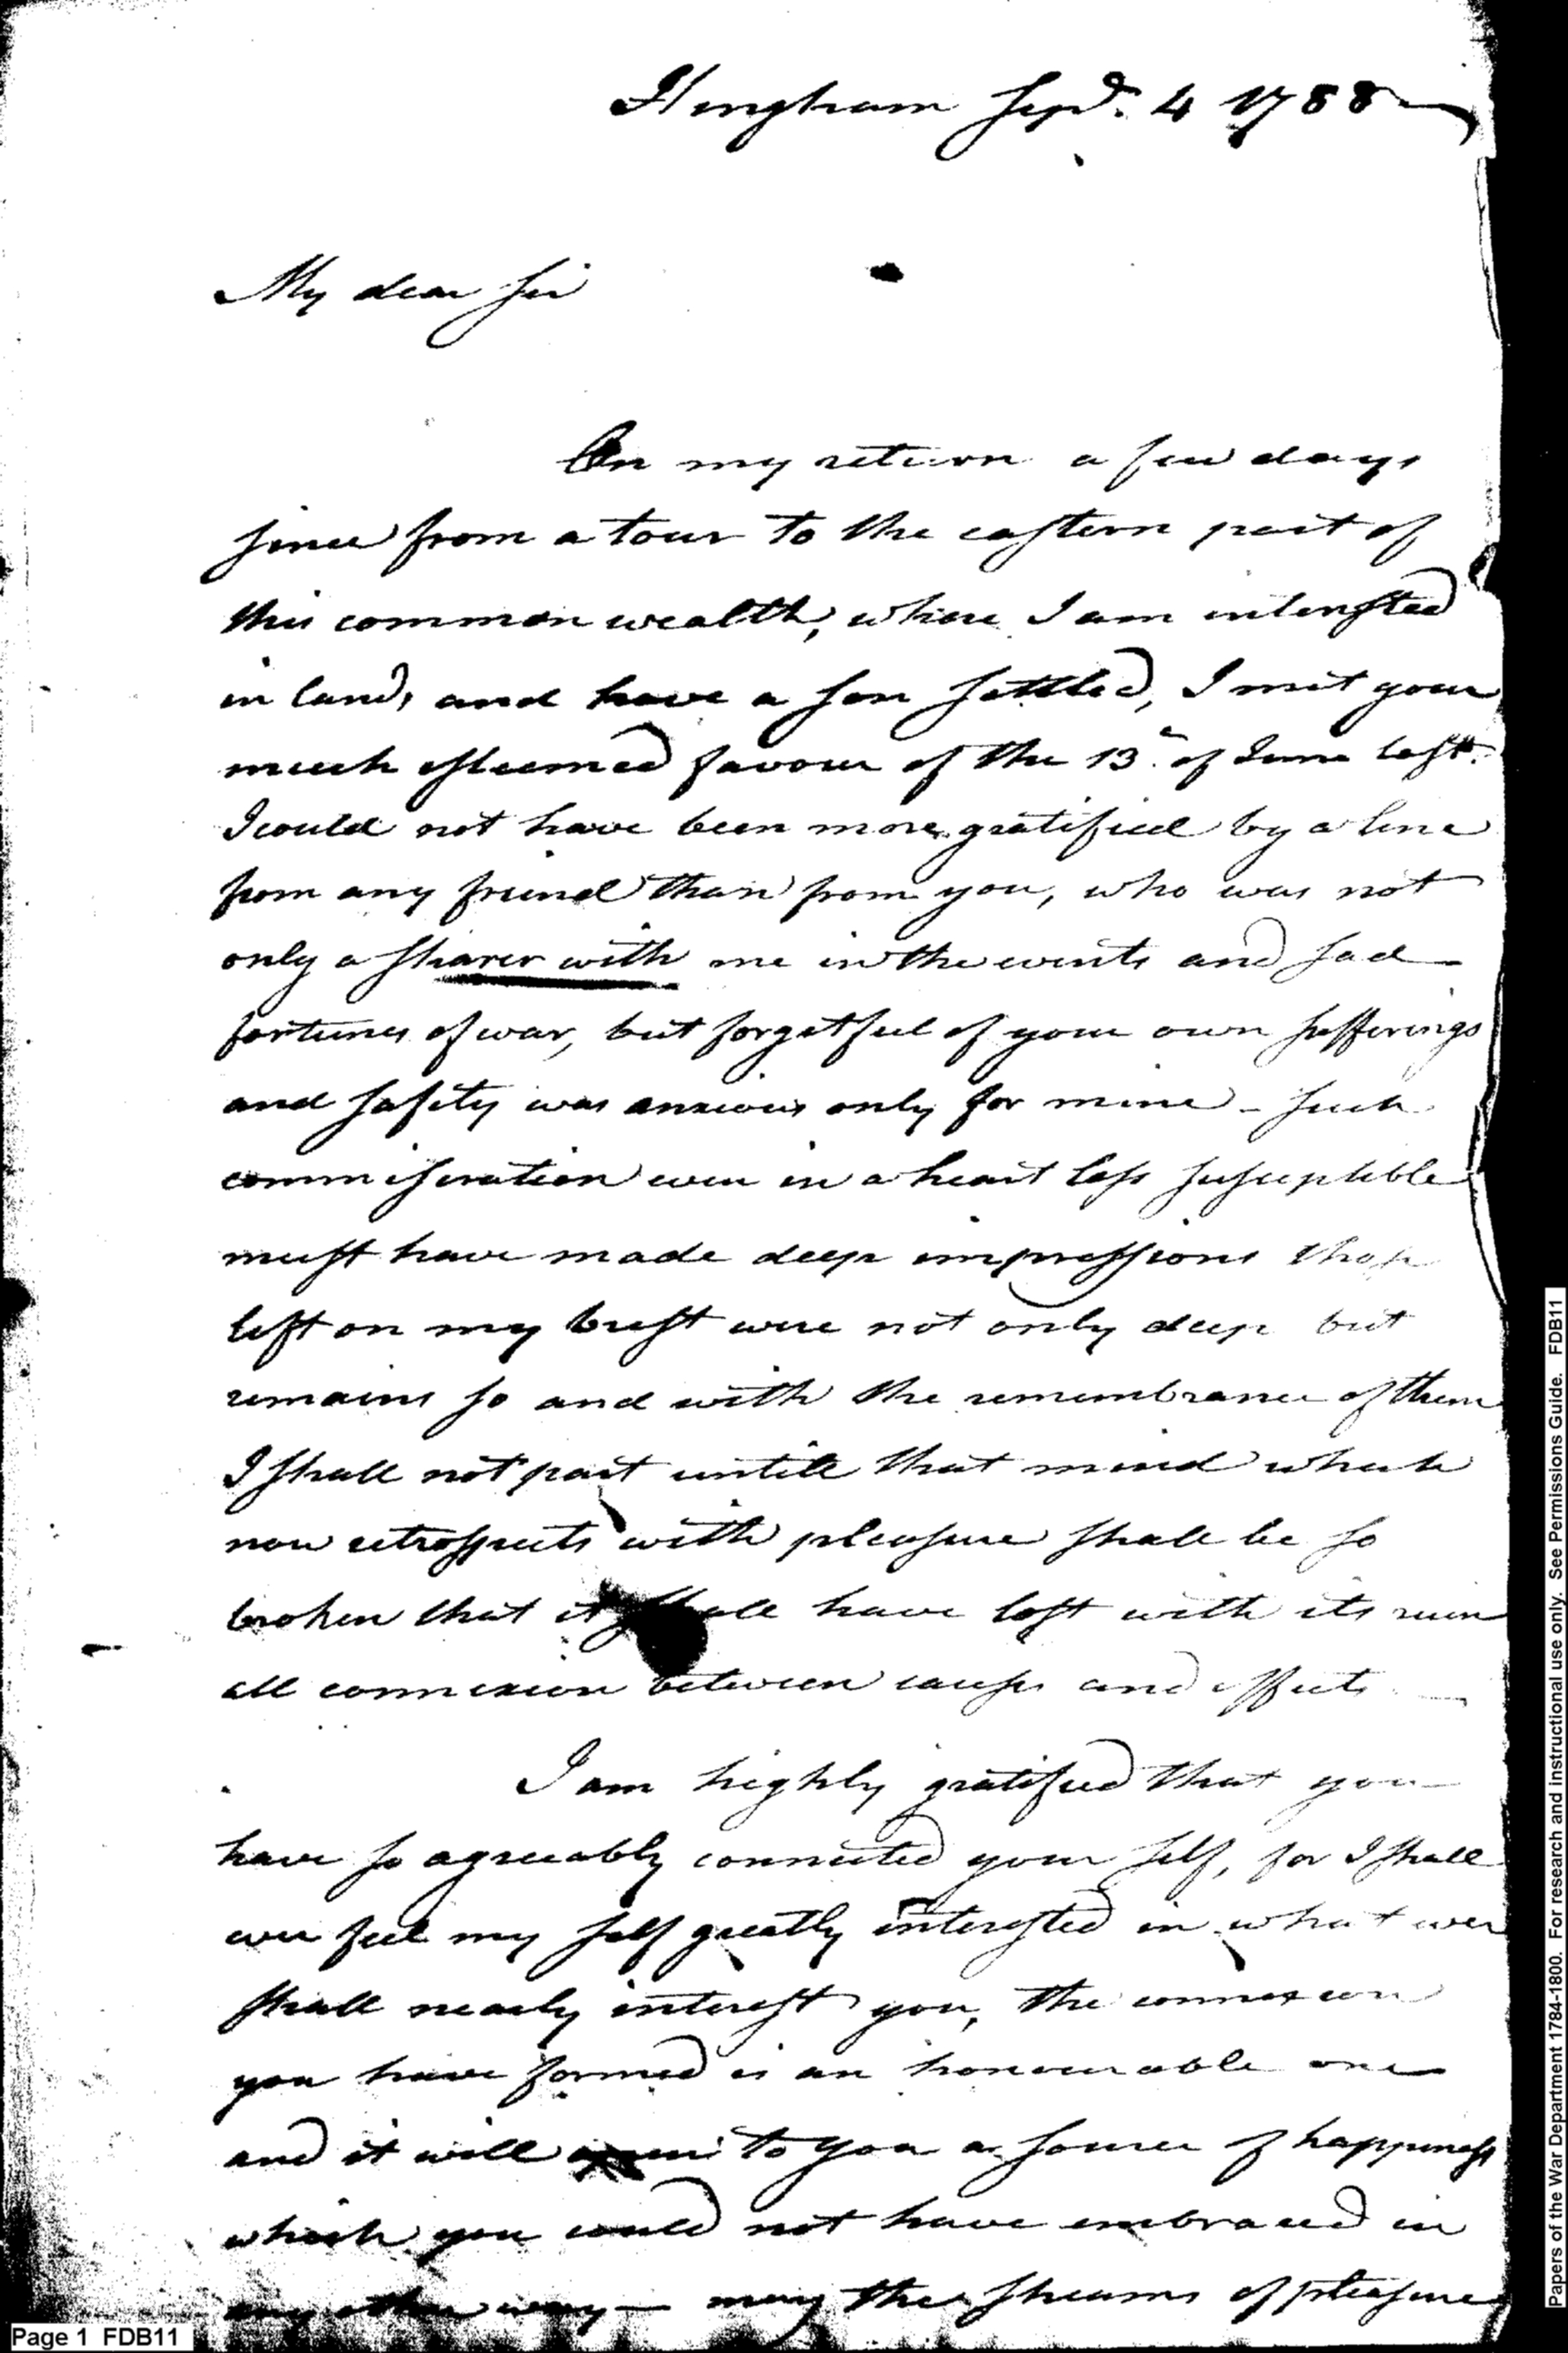 Hingham Sepr. 4 1788
My dear Sir
On my return a few days
since from a tour to the eastern part of
this common wealth, where I am interested
in lands and have a son settled, I met your
much esteemed favour of the 13th. of June last.
I could not have been more gratified by a line
from any friend than from you, who was not
only a sharer with me in the events and sad
fortunes of war, but forgetful of your own sufferings
and safety was anxious only for mine - such
commiseration even in a heart less susceptible
must have made deep impressions those
left on my brest were not only deep but
remains so and with the remembrance of them
I shall not part untill that mind which
now retrospects with pleasure shall be so
broken that it shall have lost with its ruin
all connexion between causes and effects —
I am highly gratified that you
have so agreeably connected your self, for I shall
ever feel my self greatly interested in what ever
shall nearly interest you, the connexion
you have formed is an honourable one
and it will open to you a source of happiness
which you could not have embraced in
any other way — may the streams of pleasure
Page 1 FDB11
Papers of the War Department 1784-1800. For research and instructional use only. See Permissions Guide. FDB11